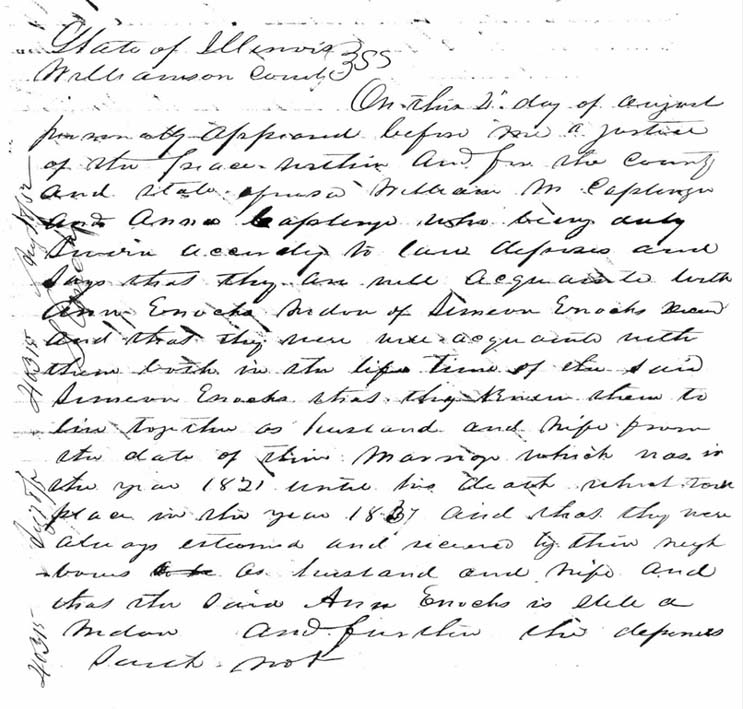 State of Illinois
Williamson County } SS
On this 2d day of august
personally appeared before me a justice
of the peace within and for the county
and state William M Caplinger
and Anna Caplinger who being duly
Sworn according to law deposes and
Says that they are well acquainted with
Ann Enochs Widow of Simeon Enochs
and that they were well acquainted with
them both in the life time of the said
Simeon Enochs that they Knew them to
live together as husband and wife from
the date of their Marriage which was in
the year 1821 until his death which took
place in the year 1837 and that they were
always esteemed and received by their neigh
bours as husband and wife and
that the said Ann Enochs is still a
Widow and further the deponents
Saith not
40315
40315